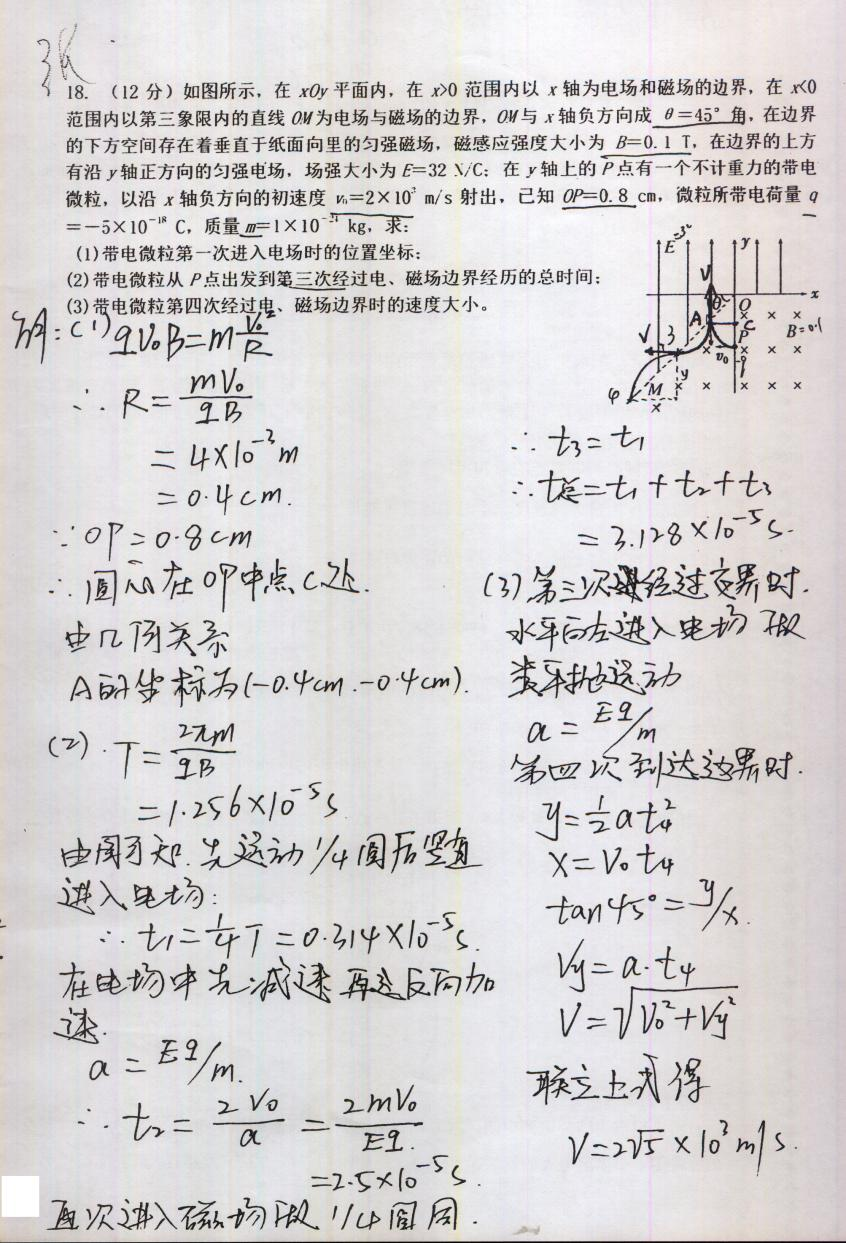 18. (12 分) 如图所示，在 xOy 平面内，在 x>0 范围内以 x 轴为电场和磁场的边界，在 x<0
范围内以第三象限内的直线 OM 为电场与磁场的边界，OM 与 x 轴负方向成 θ=45° 角，在边界
的下方空间存在着垂直于纸面向里的匀强磁场，磁感应强度大小为 B=0.1 T，在边界的上方
有沿 y 轴正方向的匀强电场，场强大小为 E=32 N/C；在 y 轴上的 P 点有一个不计重力的带电
微粒，以沿 x 轴负方向的初速度 v₀=2×10³ m/s 射出，已知 OP=0.8 cm，微粒所带电荷量 q
=－5×10⁻¹⁸ C，质量 m=1×10⁻²⁴ kg，求：
(1)带电微粒第一次进入电场时的位置坐标；
(2)带电微粒从 P 点出发到第三次经过电、磁场边界经历的总时间；
(3)带电微粒第四次经过电、磁场边界时的速度大小。
E
y
x
V
θ
O
A
C
P
B=0.1
V
3
v₀
y
M
4
x
解：(1) qV₀B=mV₀²/R
∴ R=mV₀/qB
=4×10⁻³m
=0.4cm.
∵OP=0.8cm
∴圆心在OP中点C处.
由几何关系
A的坐标为(-0.4cm.-0.4cm).
(2). T=2πm/qB
=1.256×10⁻⁵s
由图可知.先运动1/4圆后竖直
进入电场：
∴t₁=1/4T=0.314×10⁻⁵s.
在电场中先减速再反向加
速.
a=Eq/m.
∴t₂=2V₀/a=2mV₀/Eq.
=2.5×10⁻⁵s.
再次进入磁场做1/4圆周.
∴t₃=t₁
∴t总=t₁+t₂+t₃
=3.128×10⁻⁵s.
(3)第三次经过交界时.
水平向左进入电场做
类平抛运动
a=Eq/m
第四次到达边界时.
y=1/2at₄²
x=V₀t₄
tan45°=y/x.
Vy=a·t₄
V=√V₀²+Vy²
联立上式得
V=2√5×10³m/s.